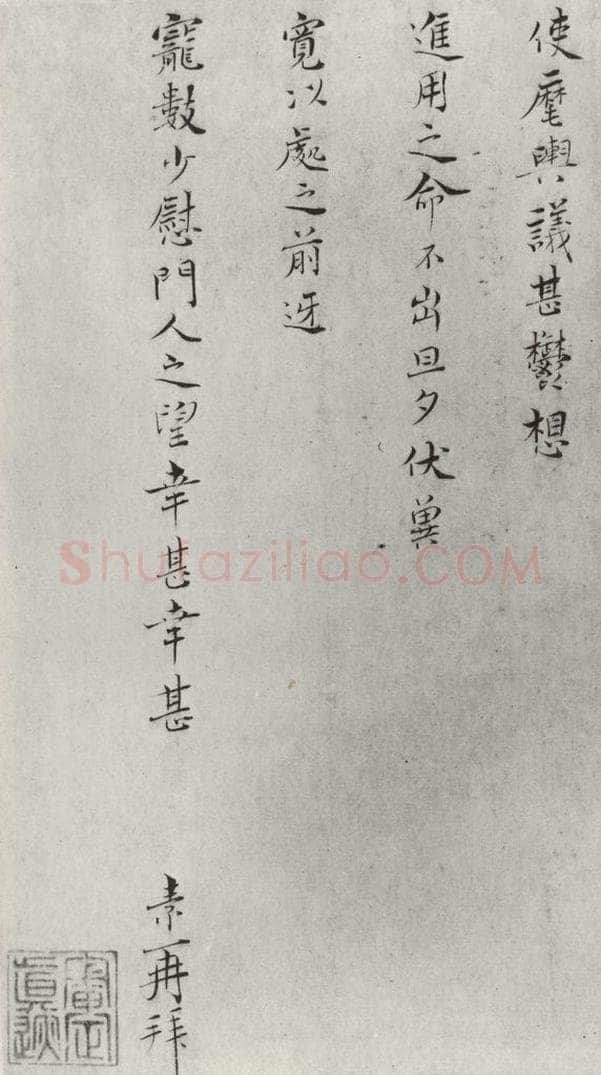 使麾輿議甚鬱想
進用之命不出旦夕伏冀
寬以處之前迓
寵數少慰門人之望幸甚幸甚
素再拜
Shufaziliao.COM